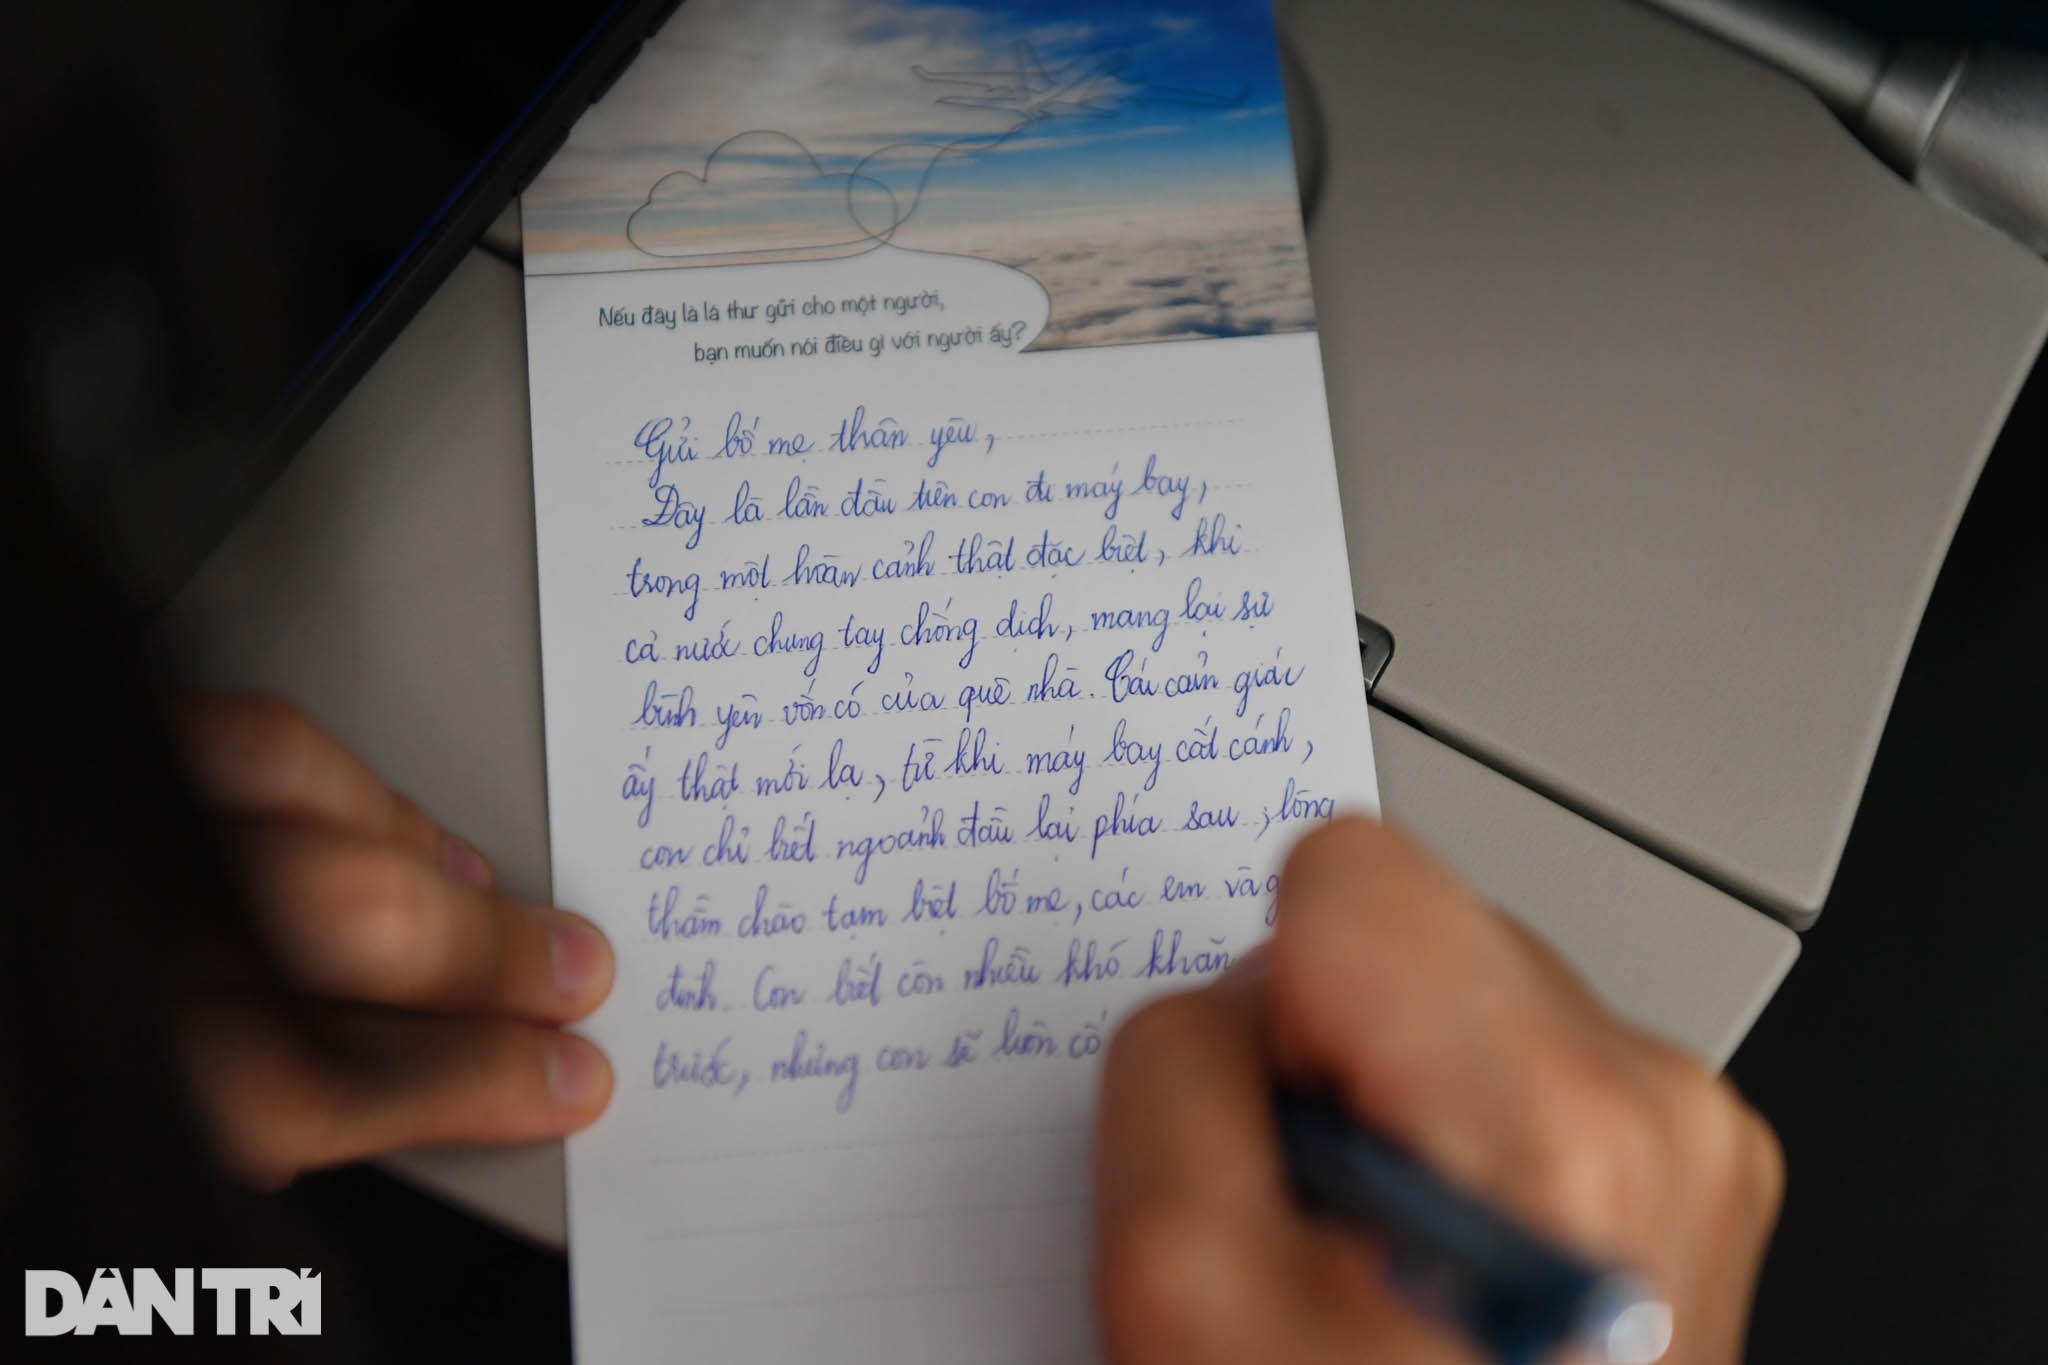 Nếu đây là lá thư gửi cho một người,
bạn muốn nói điều gì với người ấy?
Gửi bố mẹ thân yêu,
Đây là lần đầu tiên con đi máy bay,
trong một hoàn cảnh thật đặc biệt, khi
cả nước chung tay chống dịch, mang lại sự
bình yên vốn có của quê nhà. Cái cảm giác
ấy thật mới lạ, từ khi máy bay cất cánh,
con chỉ biết ngoảnh đầu lại phía sau, lòng
thầm chào tạm biệt bố mẹ, các em và g
đình. Con biết còn nhiều khó khăn
trước, nhưng con sẽ luôn cố
DÂN TRÍ